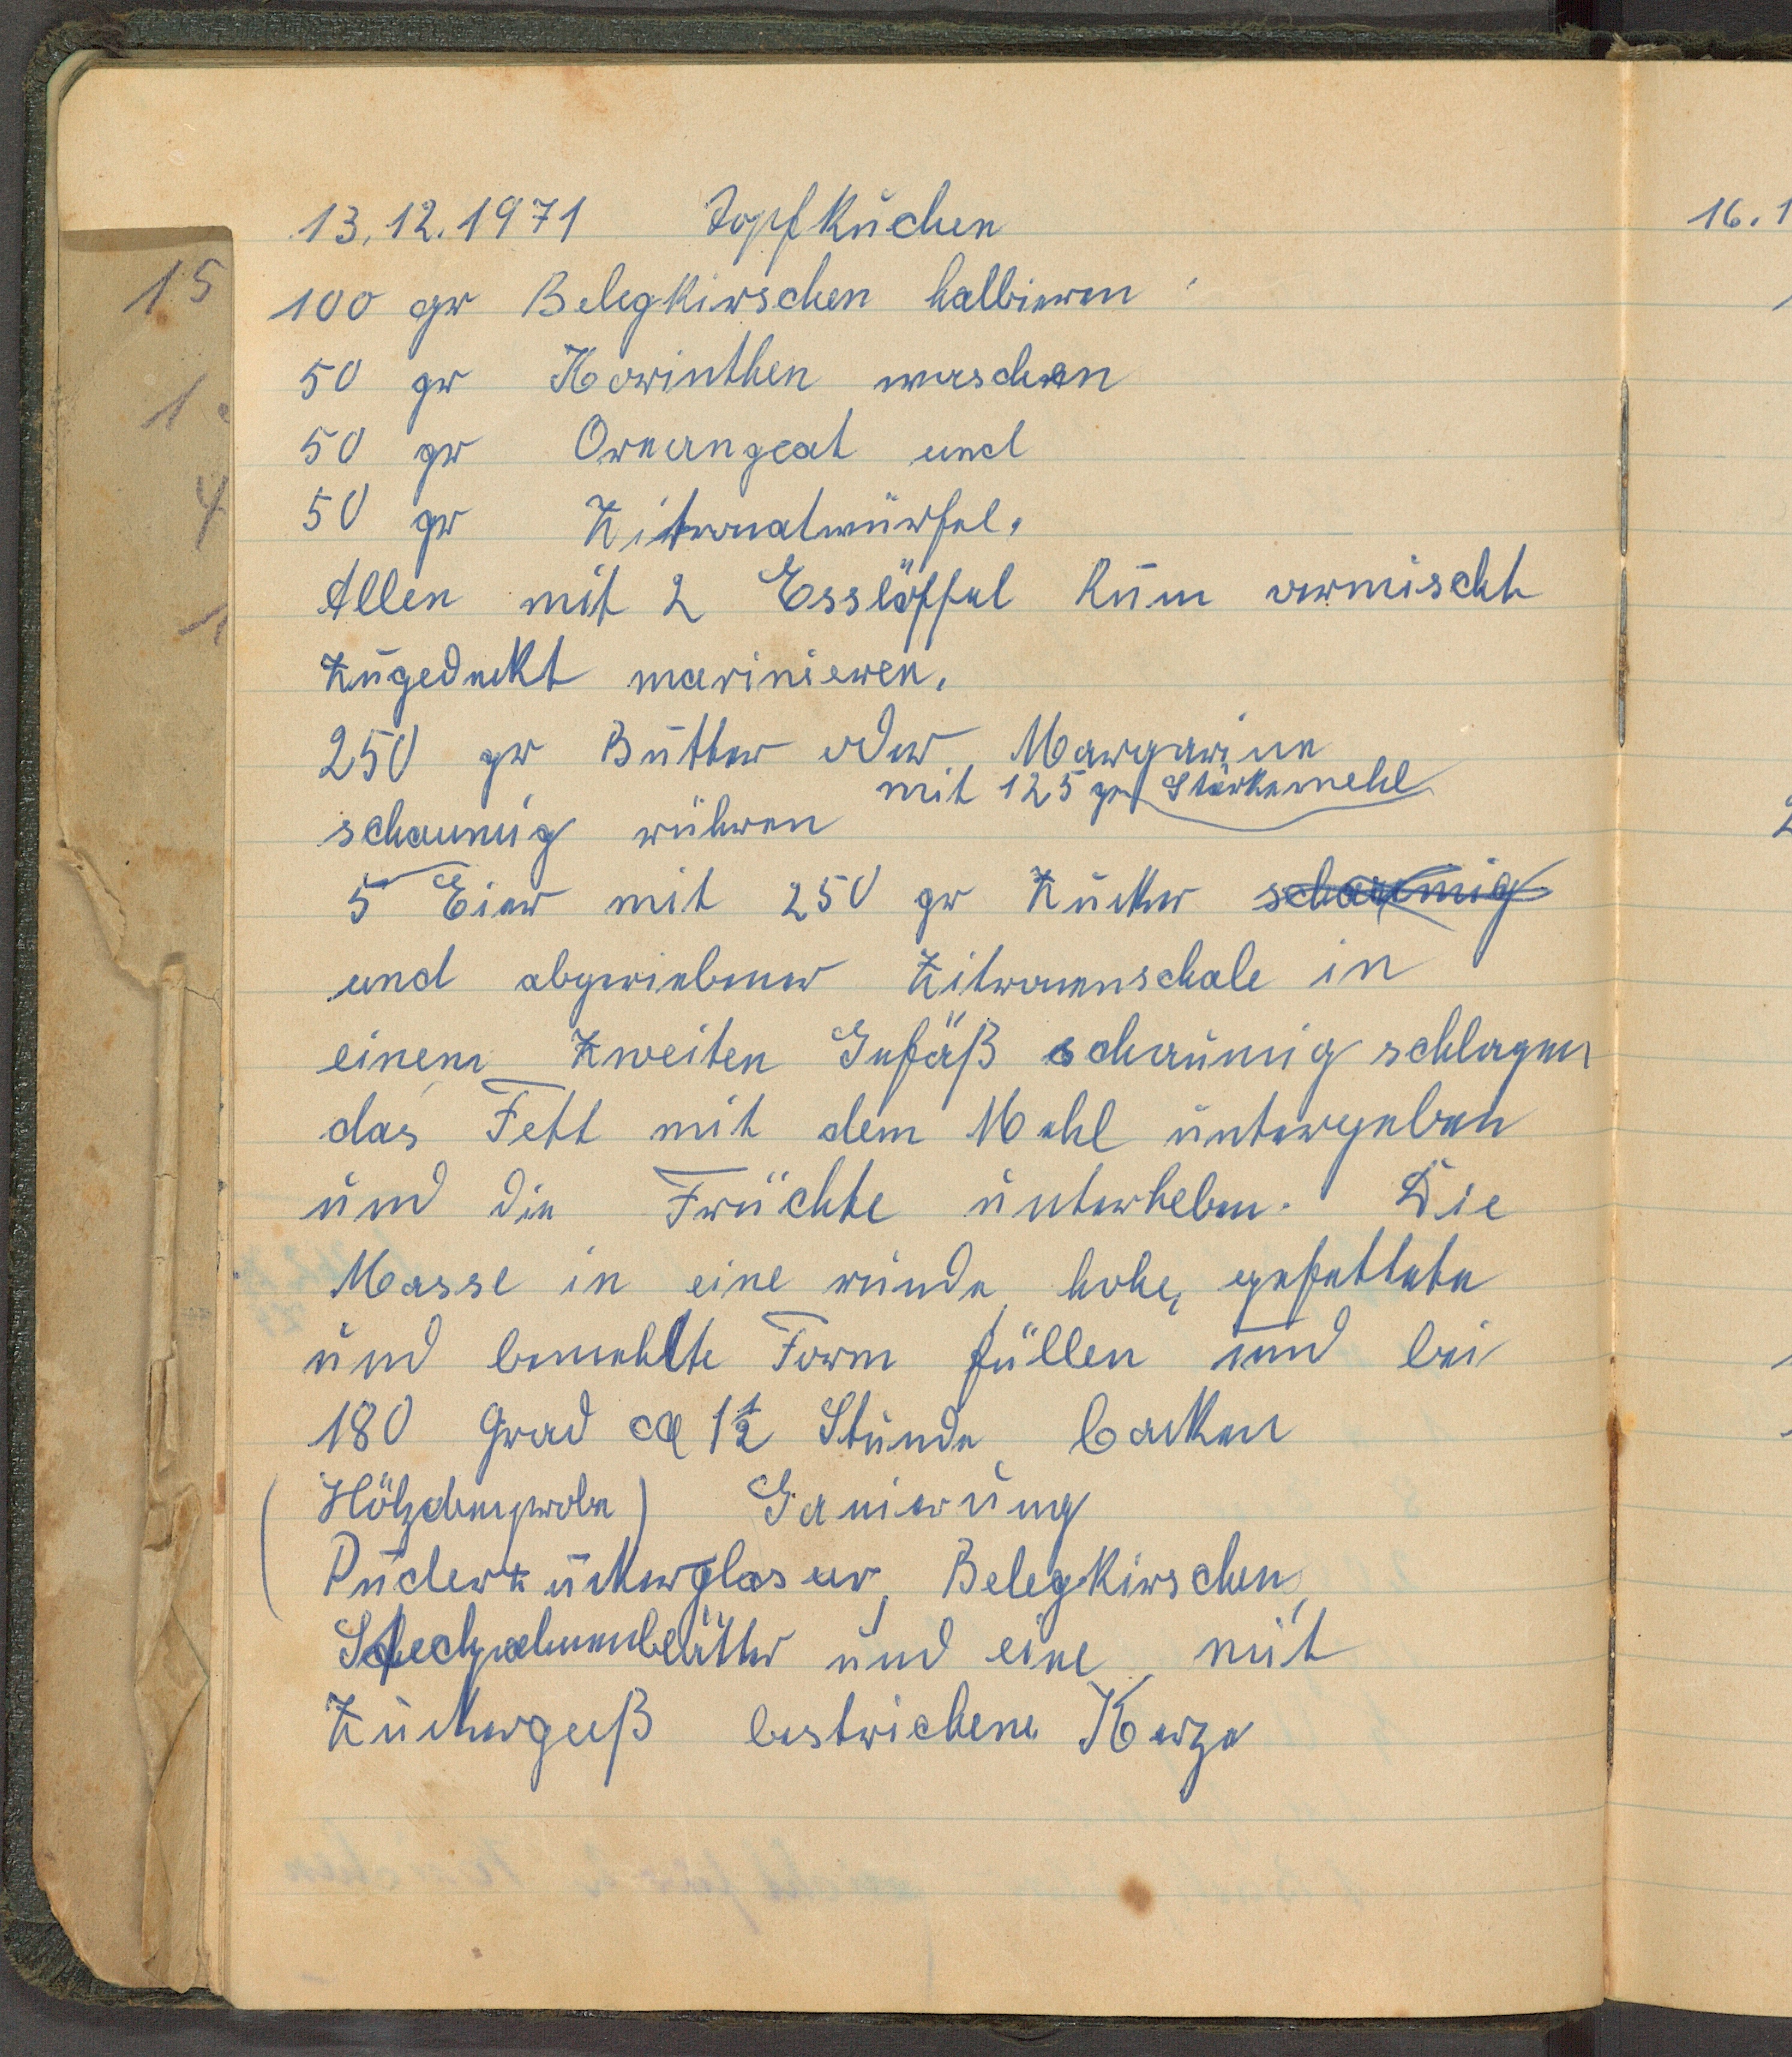 13.12.1971 Topfkuchen
100 gr Belegkirschen halbieren
50 gr Korinthen waschen
50 gr Oreangeat und
50 gr Zitronatwürfel.
Allen mit 2 Esslöffel Rum vermischt
zugedeckt marinieren.
250 gr Butter oder Margarine
mit 125 gr Stärkemehl
schaumig rühren
5 Eier mit 250 gr Zucker schaumig
und abgeriebener Zitronenschale in
einem zweiten Gefäß schaumig schlagen
das Fett mit dem Mehl untergeben
und die Früchte unterheben. Die
Masse in eine runde, hohe, gefettete
und bemehlte Form füllen und bei
180 Grad ca 1½ Stunde backen
(Hölzchenprobe) Ganierung
Puderzuckerglasur, Belegkirschen,
Stechpalmenblätter und eine mit
Zuckerguß bestrichene Kerze
16.1
15
1
4
1